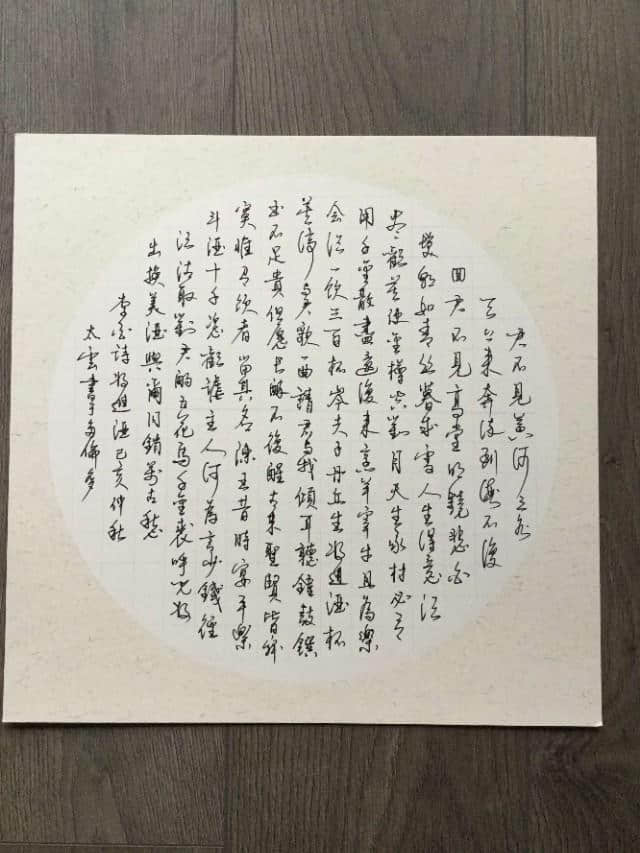 君不見黃河之水
天上來奔流到海不復
回君不見高堂明鏡悲白
髮朝如青絲暮成雪人生得意須
盡歡莫使金樽空對月天生我材必有
用千金散盡還復來烹羊宰牛且為樂
會須一飲三百杯岑夫子丹丘生將進酒杯
莫停与君歌一曲請君与我傾耳聽鐘鼓饌
玉不足貴但愿長醉不復醒古來聖賢皆寂
寞惟有飲者留其名陳王昔時宴平樂
斗酒十千恣歡謔主人何為言少錢徑
須沽取對君酌五花馬千金裘呼兒將
出換美酒與爾同銷萬古愁
李白詩將進酒己亥仲秋
太雲書于多倫多